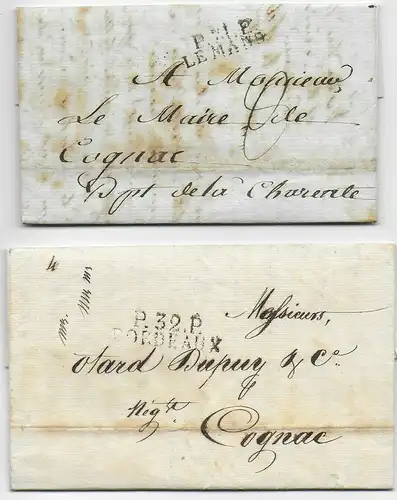 P.71.P.
LE MANS
A Monsieur
Le Maire de
Cognac
Dpt de la Charente
4
P.32.P.
BORDEAUX
Messieurs,
Otard Dupuy & Co.
Négts
Cognac